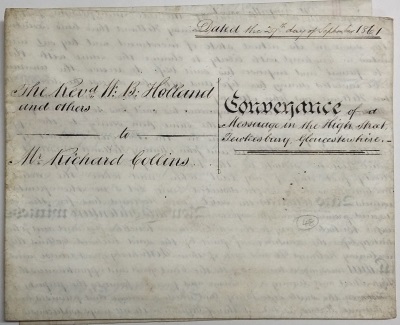 Dated the 27th day of September 1861
The Revd. W. B. Holland
and others
to
Mr Richard Collins
Conveyance of a
Messuage in the High street
Tewkesbury, Gloucestershire.